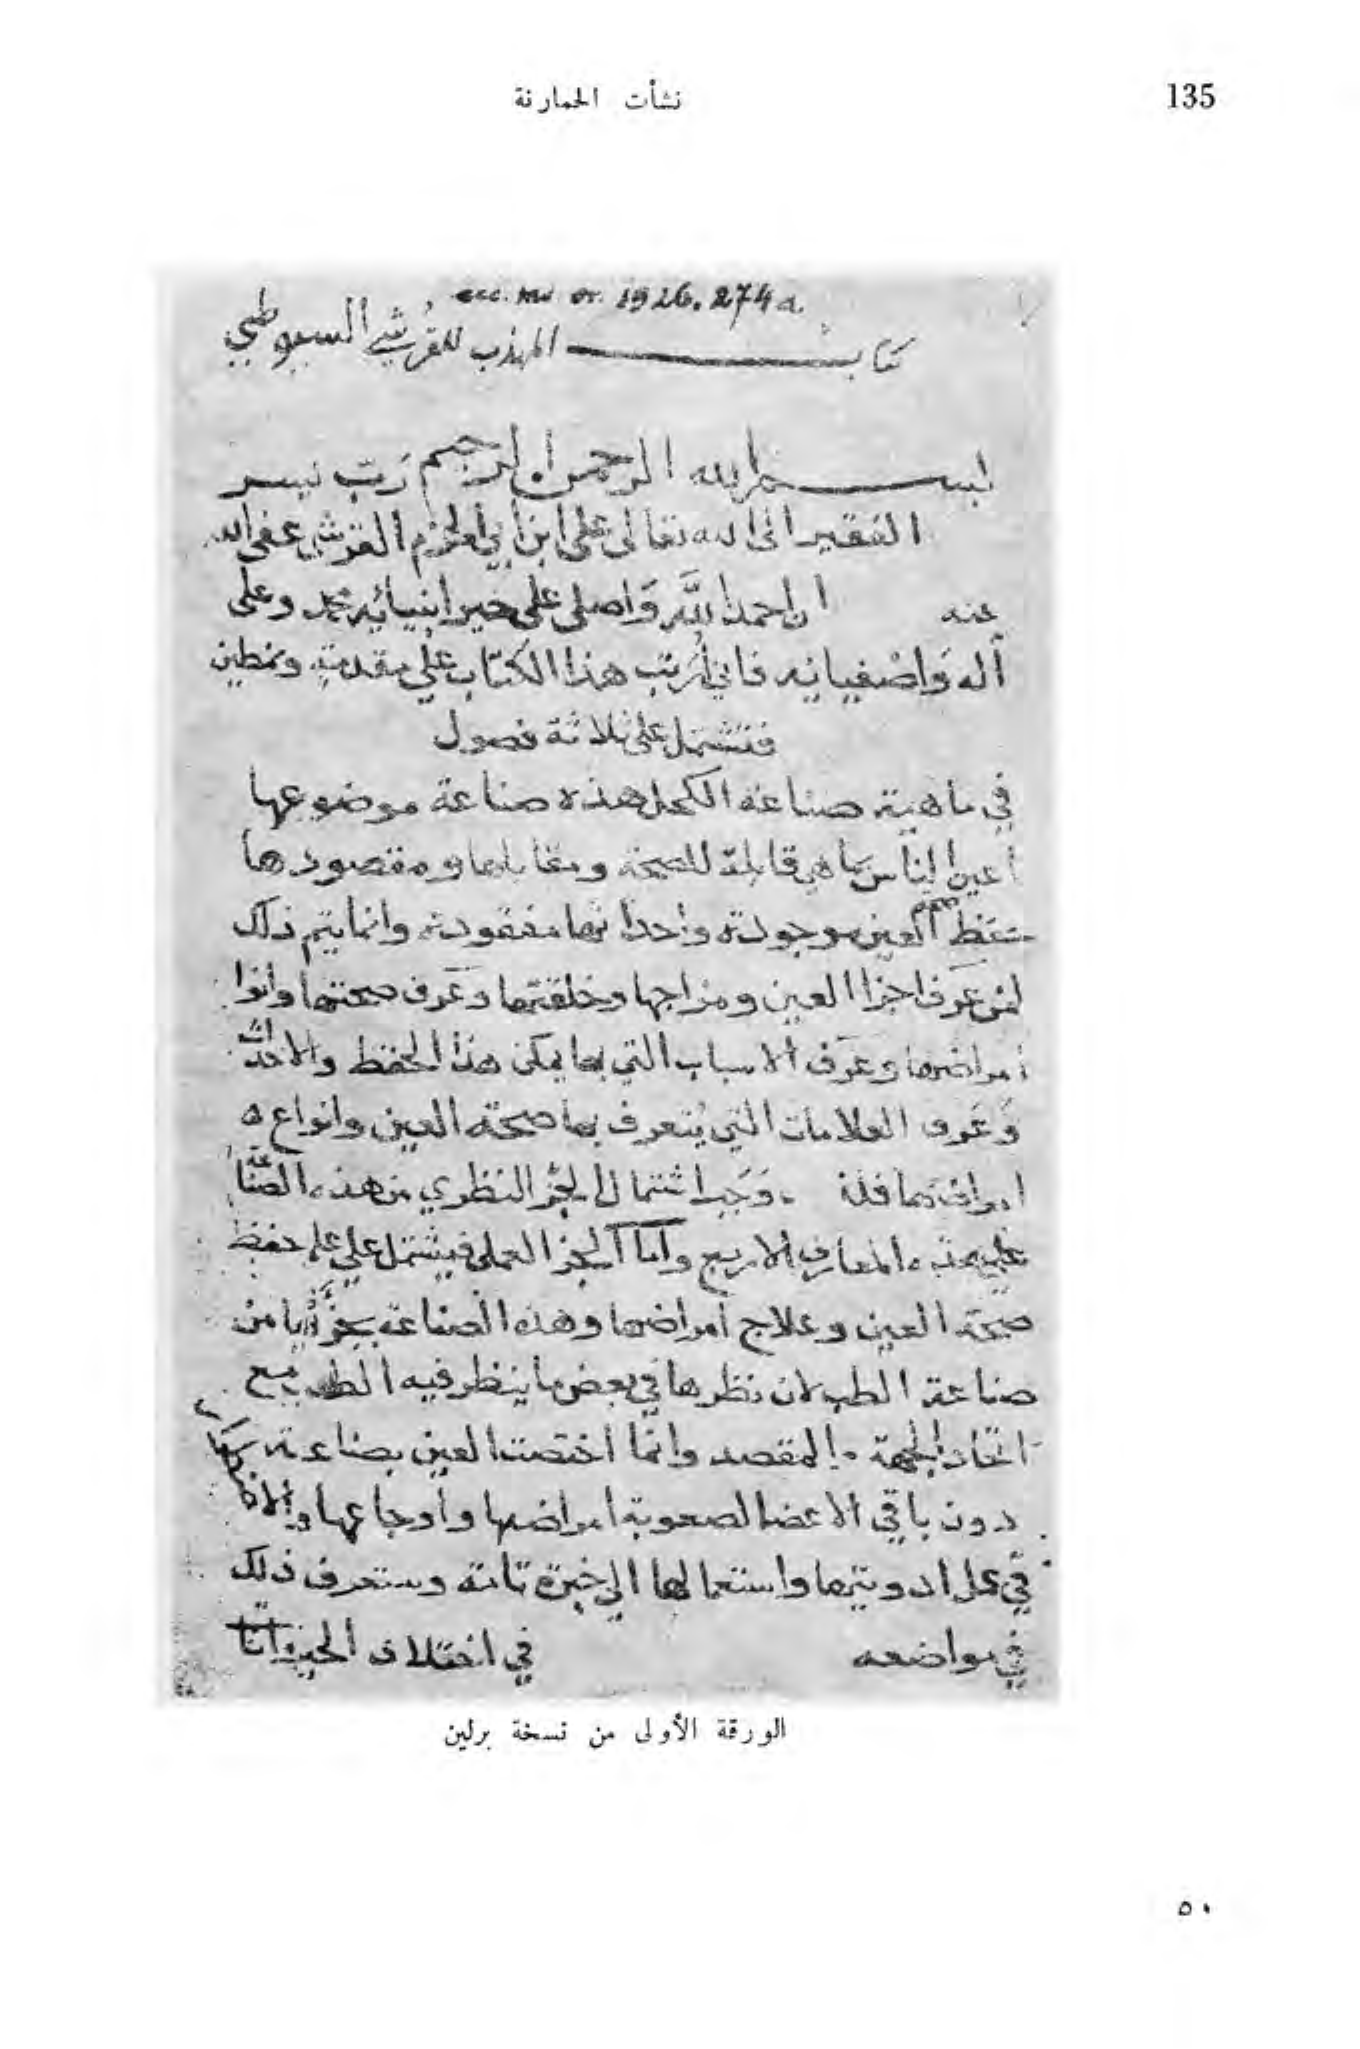 نشأت الحمارنة
135
acc. ms or. 1926. 274 a.
كتاب المهذب للقرشي السيوطي
بسم الله الرحمن الرحيم رب يسر
الفقير الى الله تعالى على ابن أبي الحزم القرشي عفى الله
عنه ان احمد الله وأصلي على خير انبيائه محمد وعلى
آله وأصفيائه فاني أرتب هذا الكتاب على مقدمة ونمطين
فتشتمل على ثلاثة فصول
في ماهية صناعة الكحل هذه صناعة موضوعها
أعين الناس بما هي قابلة للصحة ومقابلها ومقصودها
حفظ العين موجودة واحداثها مفقودة وانما يتم ذلك
لمن عرف اجزا العين ومزاجها وخلقتها وعرف صحتها وأنوا
امراضها وعرف الاسباب التي بها يمكن هذا الحفظ والاحداث
وعرف العلامات التي يتعرف بها صحة العين وانواع
امراضها فلذ وجب اشتمال الجز النظري من هذه الصناعة
على هذه المعارف الاربع وأما الجز العملي فيشتمل على علم حفظ
صحة العين وعلاج أمراضها وهذه الصناعة
صناعة الطب لان نظرها في بعض ما ينظر فيه الطب مع
اتحاد الجهة والمقصد وانما اختصت العين بصناعة
دون باقي الاعضا لصعوبة امراضها وأوجاعها
في عمل ادويتها واستعمالها الي خبرة تامة وستعرف ذلك
في مواضعه في اختلاف الحيوانا
الورقة الأولى من نسخة برلين
٥٠